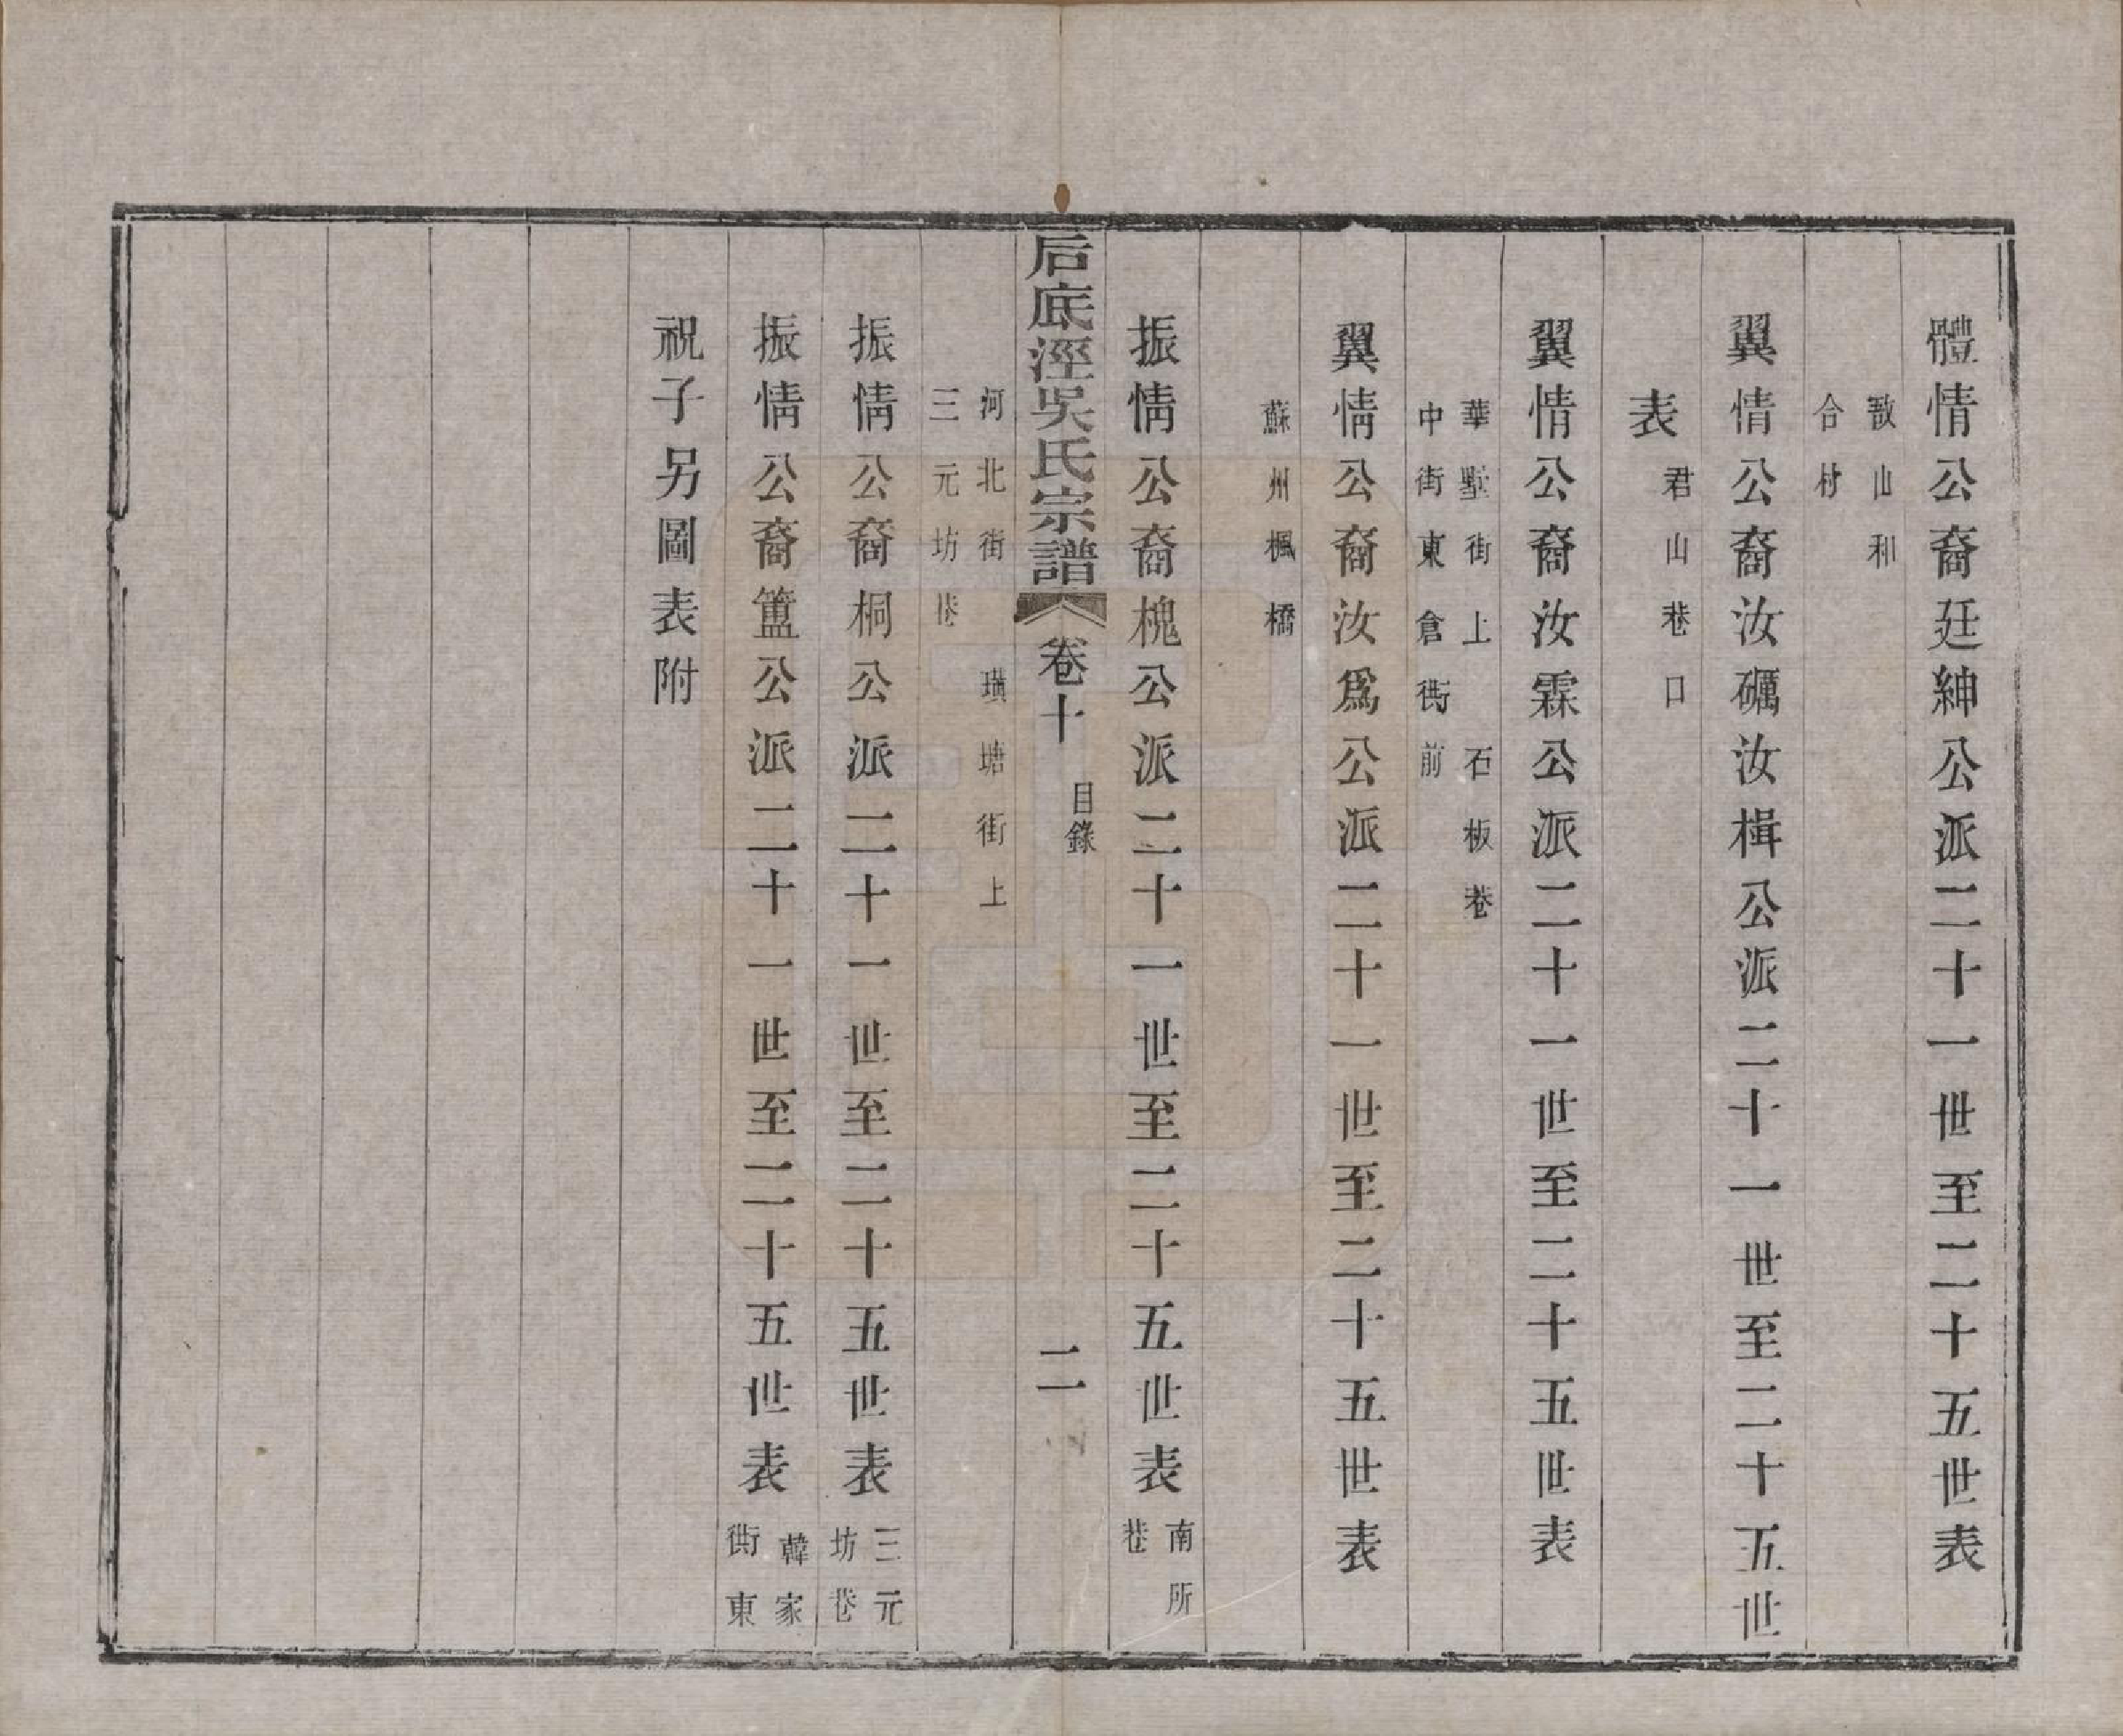 體情公裔廷紳公派二十一世至二十五世表
敔山和
合村
翼情公裔汝礪汝楫公派二十一世至二十五世
表 君山巷口
翼情公裔汝霖公派二十一世至二十五世表
華墅街上 石板巷
中街東倉衖前
翼情公裔汝爲公派二十一世至二十五世表
蘇州楓橋
振情公裔槐公派二十一世至二十五世表 南所
巷
后底涇吳氏宗譜 卷十 目錄 二
河北街 璜塘街上
三元坊巷
振情公裔桐公派二十一世至二十五世表 三元
坊巷
振情公裔簠公派二十一世至二十五世表 韓家
衖東
祝子另圖表附